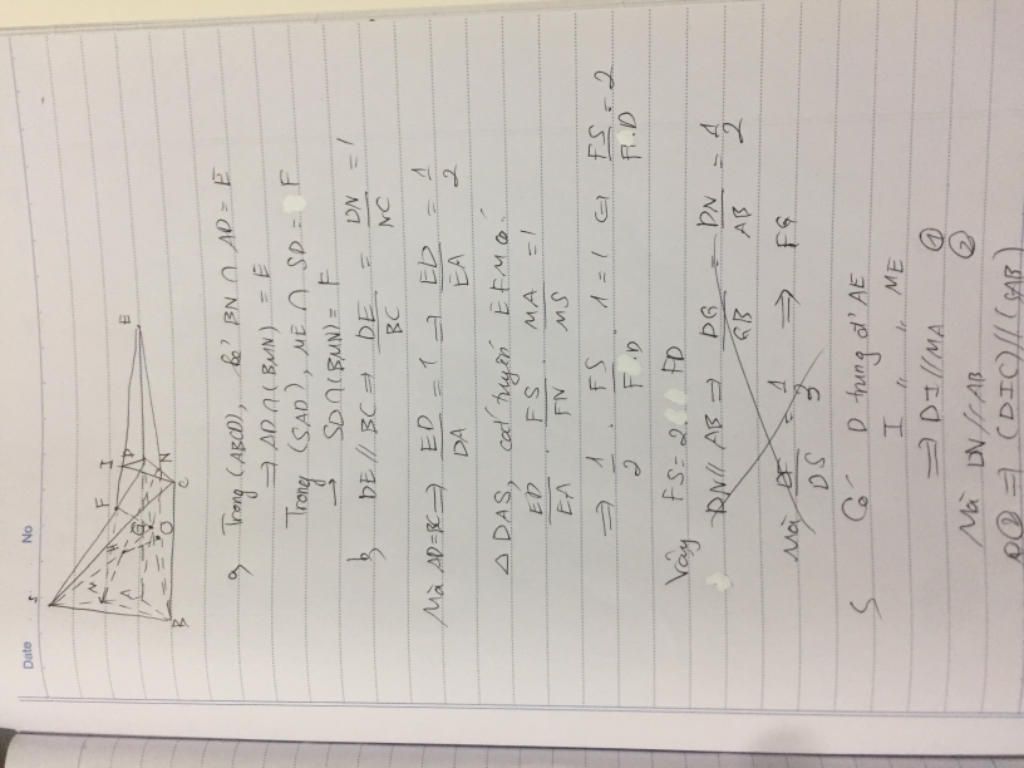 Date No
S
F I E
M H A
N
G
O C
B
a, Trong (ABCD), có BN ∩ AD = E
⇒ AD ∩ (BMN) = E
Trong (SAD), ME ∩ SD = F
→ SD ∩ (BMN) = F
b, DE // BC ⇒ DE/BC = DN/NC = 1
Mà AD=BC ⇒ ED/DA = 1 ⇒ ED/EA = 1/2
△ DAS, cát tuyến EFM có:
ED/EA . FS/FN . MA/MS = 1
⇒ 1/2 . FS/F.D . 1 = 1 (=) FS/F.D = 2
Vậy FS = 2. FD
DN // AB ⇒ DG/GB = DN/AB = 1/2
Mà DF/DS = 1/3 ⇒ FG
c, Có D trung đ' AE
I " " ME
⇒ DI // MA ①
Mà DN // AB ②
①② ⇒ (DIC) // (SAB)